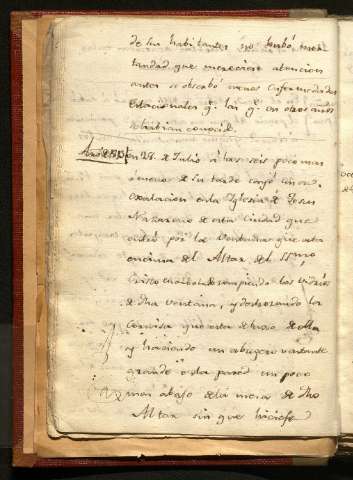 de sus habitantes no hubo mor
tandad que mereciese atencion
antes se observó menos enfermedades
estacionales q.e las q.e en otros años
se habian conocido.
en 28 de Julio á las seis poco mas
ó menos de la tarde cayó una
exalacion en la Iglesia de Jesus
Nazareno de esta Ciudad que
entró por la ventana que esta
encima del Altar del SSmo
Cristo rompiendo los vidrios
de dha ventana, y destrozando la
cornisa que esta debaxo de ella
y haciendo un abugero bastante
grande en la pared un poco
mas abajo de la mesa de dho
Altar sin que hiciese